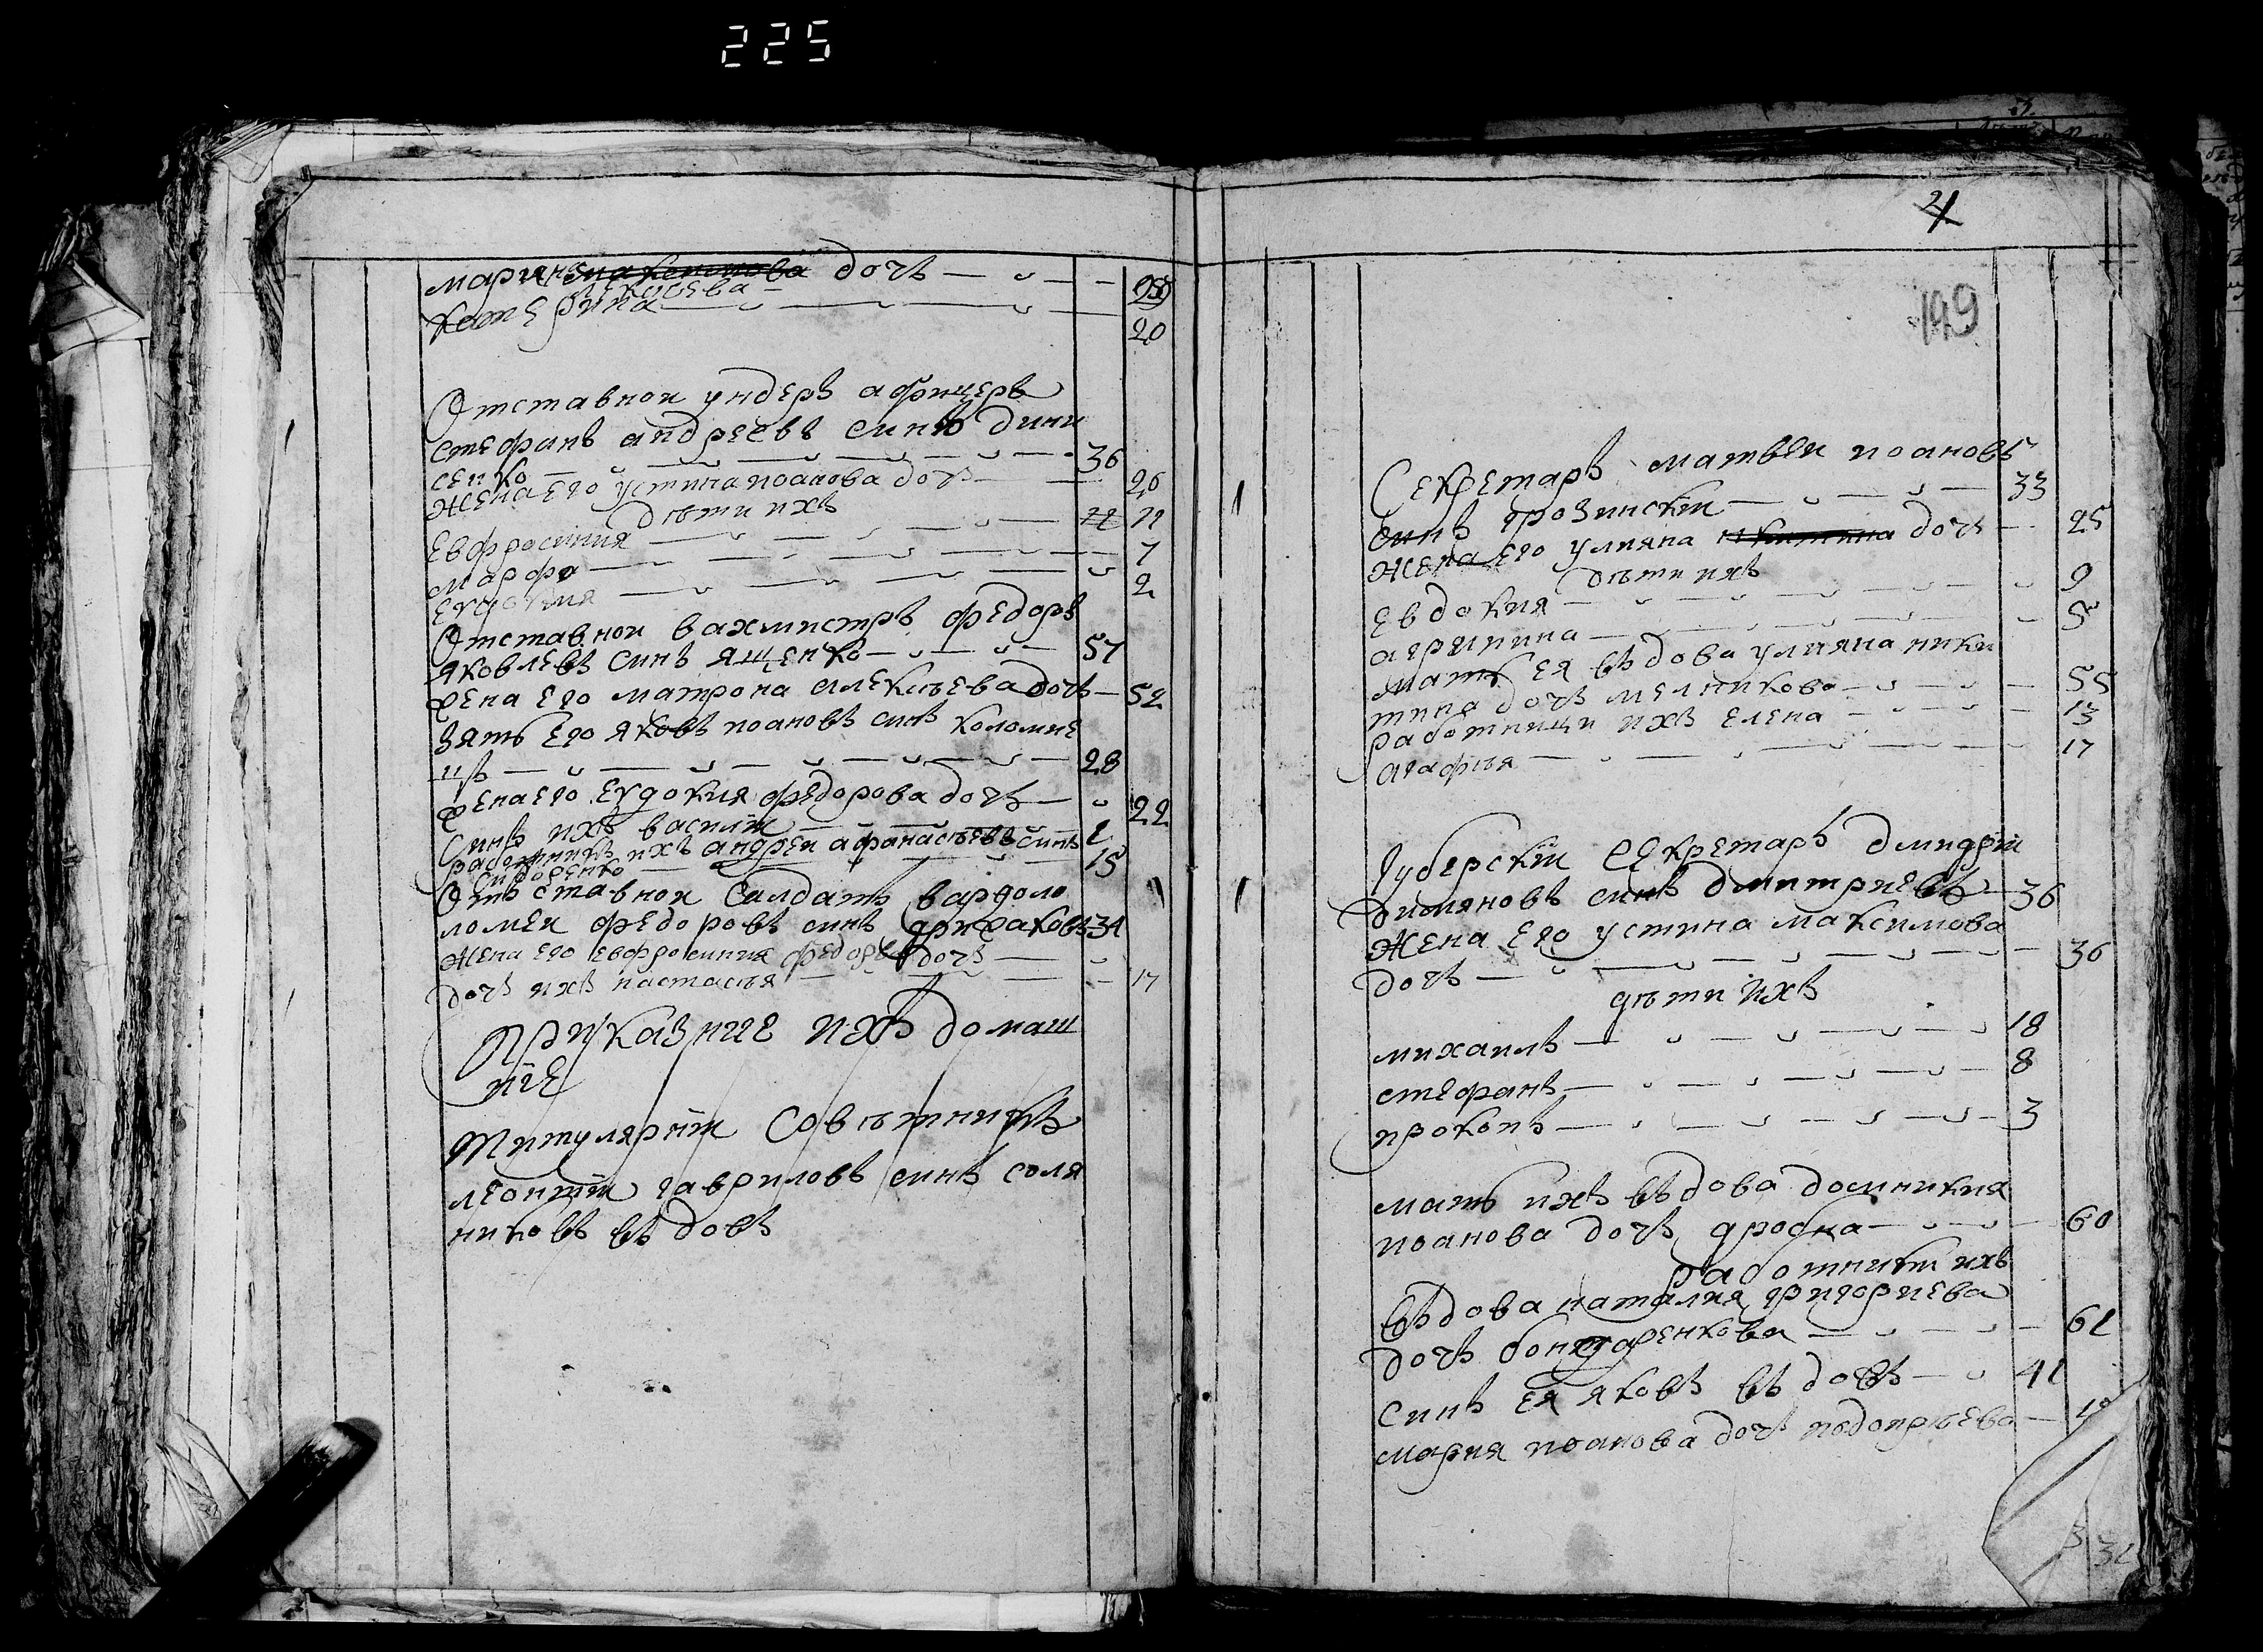 225
марина дочъ
яковлева
катерина 20
Отставнои ундеръ афицеръ
стефанъ андреевъ синъ дини
сенко 36
жена его устина иоанова дочъ 26
дѣти ихъ
евфросиния 11
марфа 7
евдокия 2
Отставнои вахмистръ федоръ
яковлевъ синъ ященко 57
жена его матрона алексѣева дочъ 52
зять его яковъ иоановъ синъ коломие
цъ 28
жена его евдокия федорова дочъ 22
Синъ ихъ василій 1
работникъ ихъ андреи афанасѣевъ синъ
сидоренко 15
Отъставнои Салдатъ вардоло
ломеи федоровъ синъ 34
жена его евфросиния федорова дочъ
дочъ ихъ настасѣя 17
Приказніе ихъ домаш
ніе
Титулярній Совѣтникъ
леонтій гавриловъ синъ соля
никовъ въдовъ
21
149
Секретаръ матвеи иоановъ
синъ грозинскій 33
жена его улияна никитина дочъ 25
дѣти ихъ
евдокия 9
агрипина 5
мать ея въдова улияна ники
тина дочъ мелникова 55
работници ихъ елена 13
агафѣя 17
Губерскій Секретаръ дмидрій
димяновъ синъ дмитриевъ 36
Жена его устина максимова
дочъ 36
дѣти ихъ
михаилъ 18
стефанъ 8
прокопъ 3
мать ихъ въдова домникия
иоанова дочъ дробка 60
работники ихъ
въдова наталия григориева
дочъ бондаренкова 61
Синъ ея яковъ въдовъ 41
мария иоанова дочъ